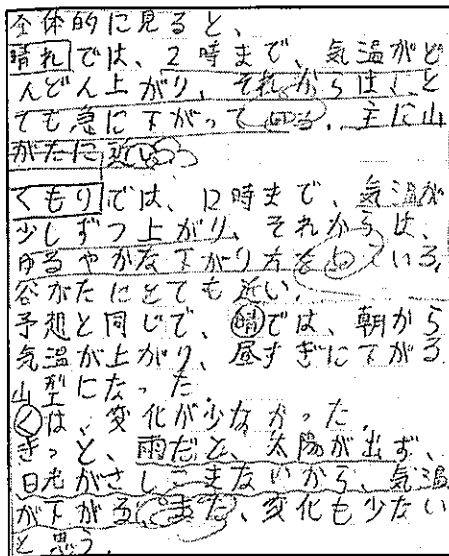 全体的に見ると、
晴れでは、2時まで、気温がど
んどん上がり、それからは、と
ても急に下がっている。主に山
がたに近い
くもりでは、12時まで、気温が
少しずつ上がり、それからは、
ゆるやかな下がり方をしている。
谷がたにとても近い。
予想と同じで、晴では、朝から
気温が上がり、昼すぎに下がる
山型になった。
くは、変化が少なかった。
きっと、雨だと、太陽が出ず、
日光がさしこまないから、気温
が下がる。また、変化も少ない
と思う。